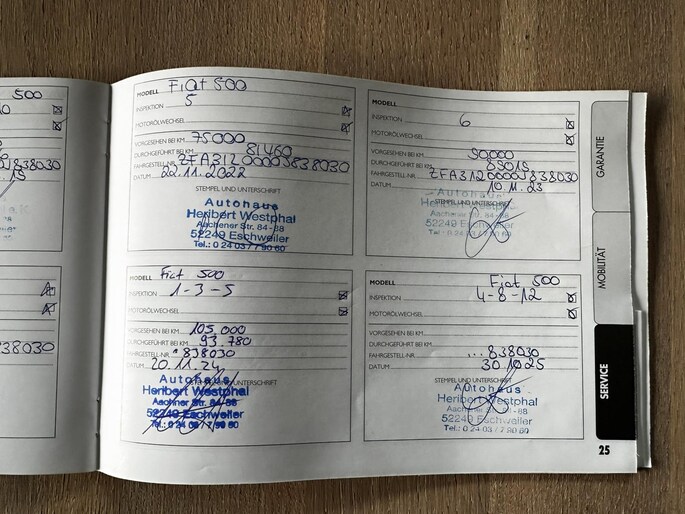 500
838030
MODELL Fiat 500
INSPEKTION 5
MOTORÖLWECHSEL
VORGESEHEN BEI KM 75000
DURCHGEFÜHRT BEI KM 81460
FAHRGESTELL-NR. ZFA3120000J838030
DATUM 22.11.2022
STEMPEL UND UNTERSCHRIFT
Autohaus
Heribert Westphal
Aachener Str. 84-88
52249 Eschweiler
Tel.: 0 24 03 / 7 90 60
MODELL
INSPEKTION 6
MOTORÖLWECHSEL
VORGESEHEN BEI KM 90000
DURCHGEFÜHRT BEI KM
FAHRGESTELL-NR. ZFA3120000J838030
DATUM 10.11.23
STEMPEL UND UNTERSCHRIFT
Autohaus
Heribert
Aachener Str. 84-88
52249 Eschweiler
Tel.: 0 24 03 / 7 90 60
838030
MODELL Fiat 500
INSPEKTION 1-3-5
MOTORÖLWECHSEL
VORGESEHEN BEI KM 105.000
DURCHGEFÜHRT BEI KM 93.780
FAHRGESTELL-NR. 838030
DATUM 20.11.24
UND UNTERSCHRIFT
Autohaus
Heribert Westphal
Aachner Str. 84-88
52249 Eschweiler
Tel.: 0 24 03 / 7 90 60
MODELL Fiat 500
INSPEKTION 4-8-12
MOTORÖLWECHSEL
VORGESEHEN BEI KM
DURCHGEFÜHRT BEI KM
FAHRGESTELL-NR. ...838030
DATUM 30.10.25
STEMPEL UND UNTERSCHRIFT
Autohaus
Heribert Westphal
Aachener Str. 84-88
52249 Eschweiler
Tel.: 0 24 03 / 7 90 60
GARANTIE
MOBILITÄT
SERVICE
25